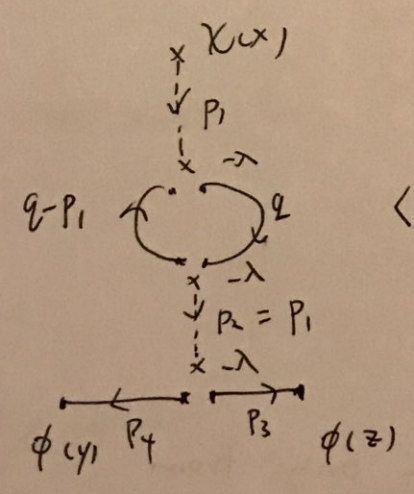 χ(x)
p₁
-λ
q-p₁
q
<
-λ
p₂ = p₁
-λ
p₄
p₃
φ(y)
φ(z)